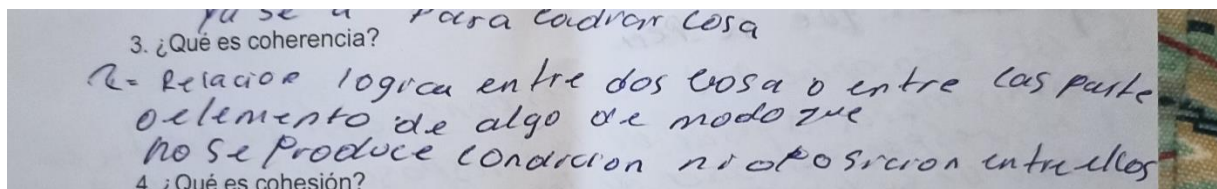 ya se a para cadrar cosa
3. ¿Qué es coherencia?
R= Relacion logica entre dos cosa o entre las parte
o elemento de algo de modo que
no se produce condiccion ni oposicion entre ellos
4. ¿Qué es cohesión?